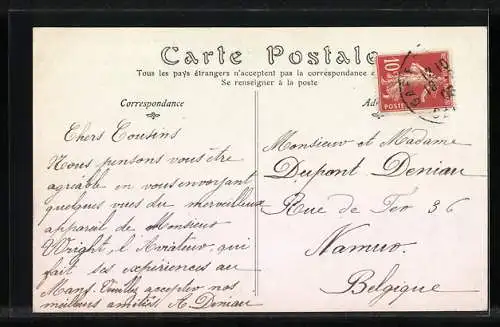 Carte Postale
Tous les pays étrangers n'acceptent pas la correspondance
Se renseigner à la poste
Correspondance
Chers Cousins
Nous pensons vous être
agréable en vous envoyant
quelques vues du merveilleux
appareil de Monsieur
Wright, l'Aviateur, qui
fait ses expériences au
Mans. Veuillez accepter nos
meilleurs amitiés A. Deniau
10
POSTE
Monsieur et Madame
Dupont Deniau
Rue de Fer 36
Namur.
Belgique